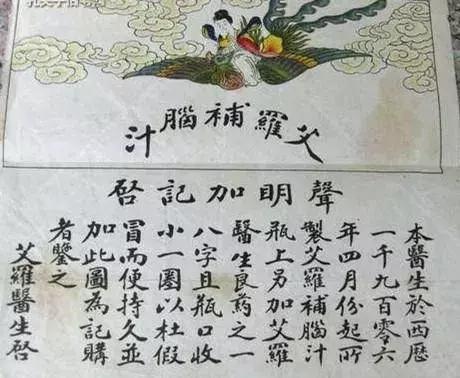 艾羅補腦汁
聲明加記啓
本醫生於西歷
一千九百零六
年四月份起所
製艾羅補腦汁
瓶上另加艾羅
醫生良葯之一
八字且瓶口收
小一圈以杜假
冒而便持久並
加此圖為記購
者鑒之
艾羅醫生啓